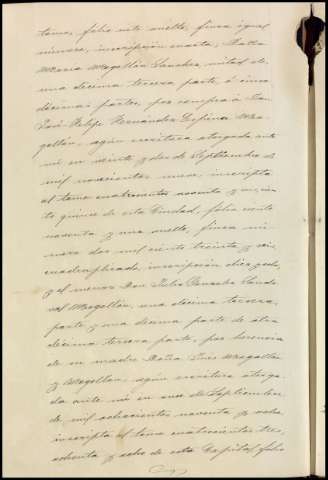 tomo, folio siete vuelto, finca igual
número, inscripción cuarta; Doña
María Magallón Sánchez, mitad de
una décima tercera parte, o cinco
décimas partes, por compra a Don
José Felipe Fernández Espina Ma-
gallón, según escritura otorgada ante
mí en veinte y dos de Septiembre de
mil novecientos nueve, inscripta
al tomo cuatrocientos noventa y
te quince de esta Ciudad, folio ciento
noventa y uno vuelto, finca nú-
mero dos mil ciento treinta y seis
cuadruplicado, inscripción diez y ocho,
y el menor Don Julio Sando-
val Magallón, una décima tercera
parte y una décima parte de otra
décima tercera parte, por herencia
de su madre Doña Luis Magallón
y Magallón, según escritura otorga-
da ante mí en once de Septiembre
de mil ochocientos noventa y ocho
inscripta al tomo cuatrocientos tres
ochenta y ocho de esta Capital, folio